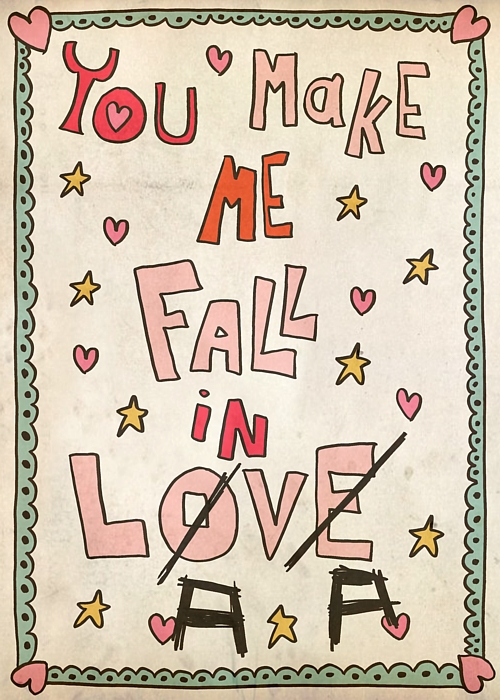 YOU MaKE
ME
FALL
iN
LOVE
A A